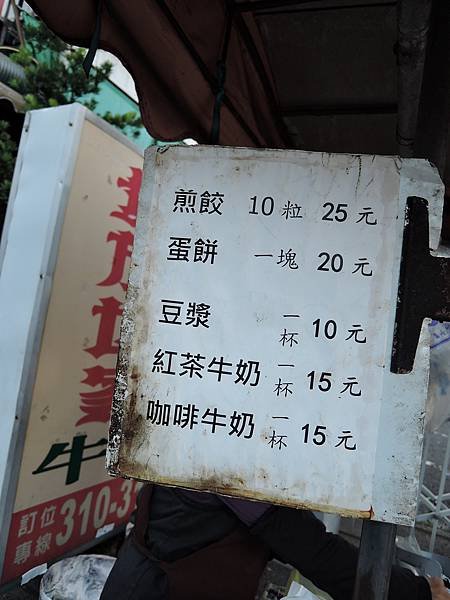 煎餃 10粒 25元
蛋餅 一塊 20元
豆漿 一杯 10元
紅茶牛奶 一杯 15元
咖啡牛奶 一杯 15元
牛
訂位專線 310-3